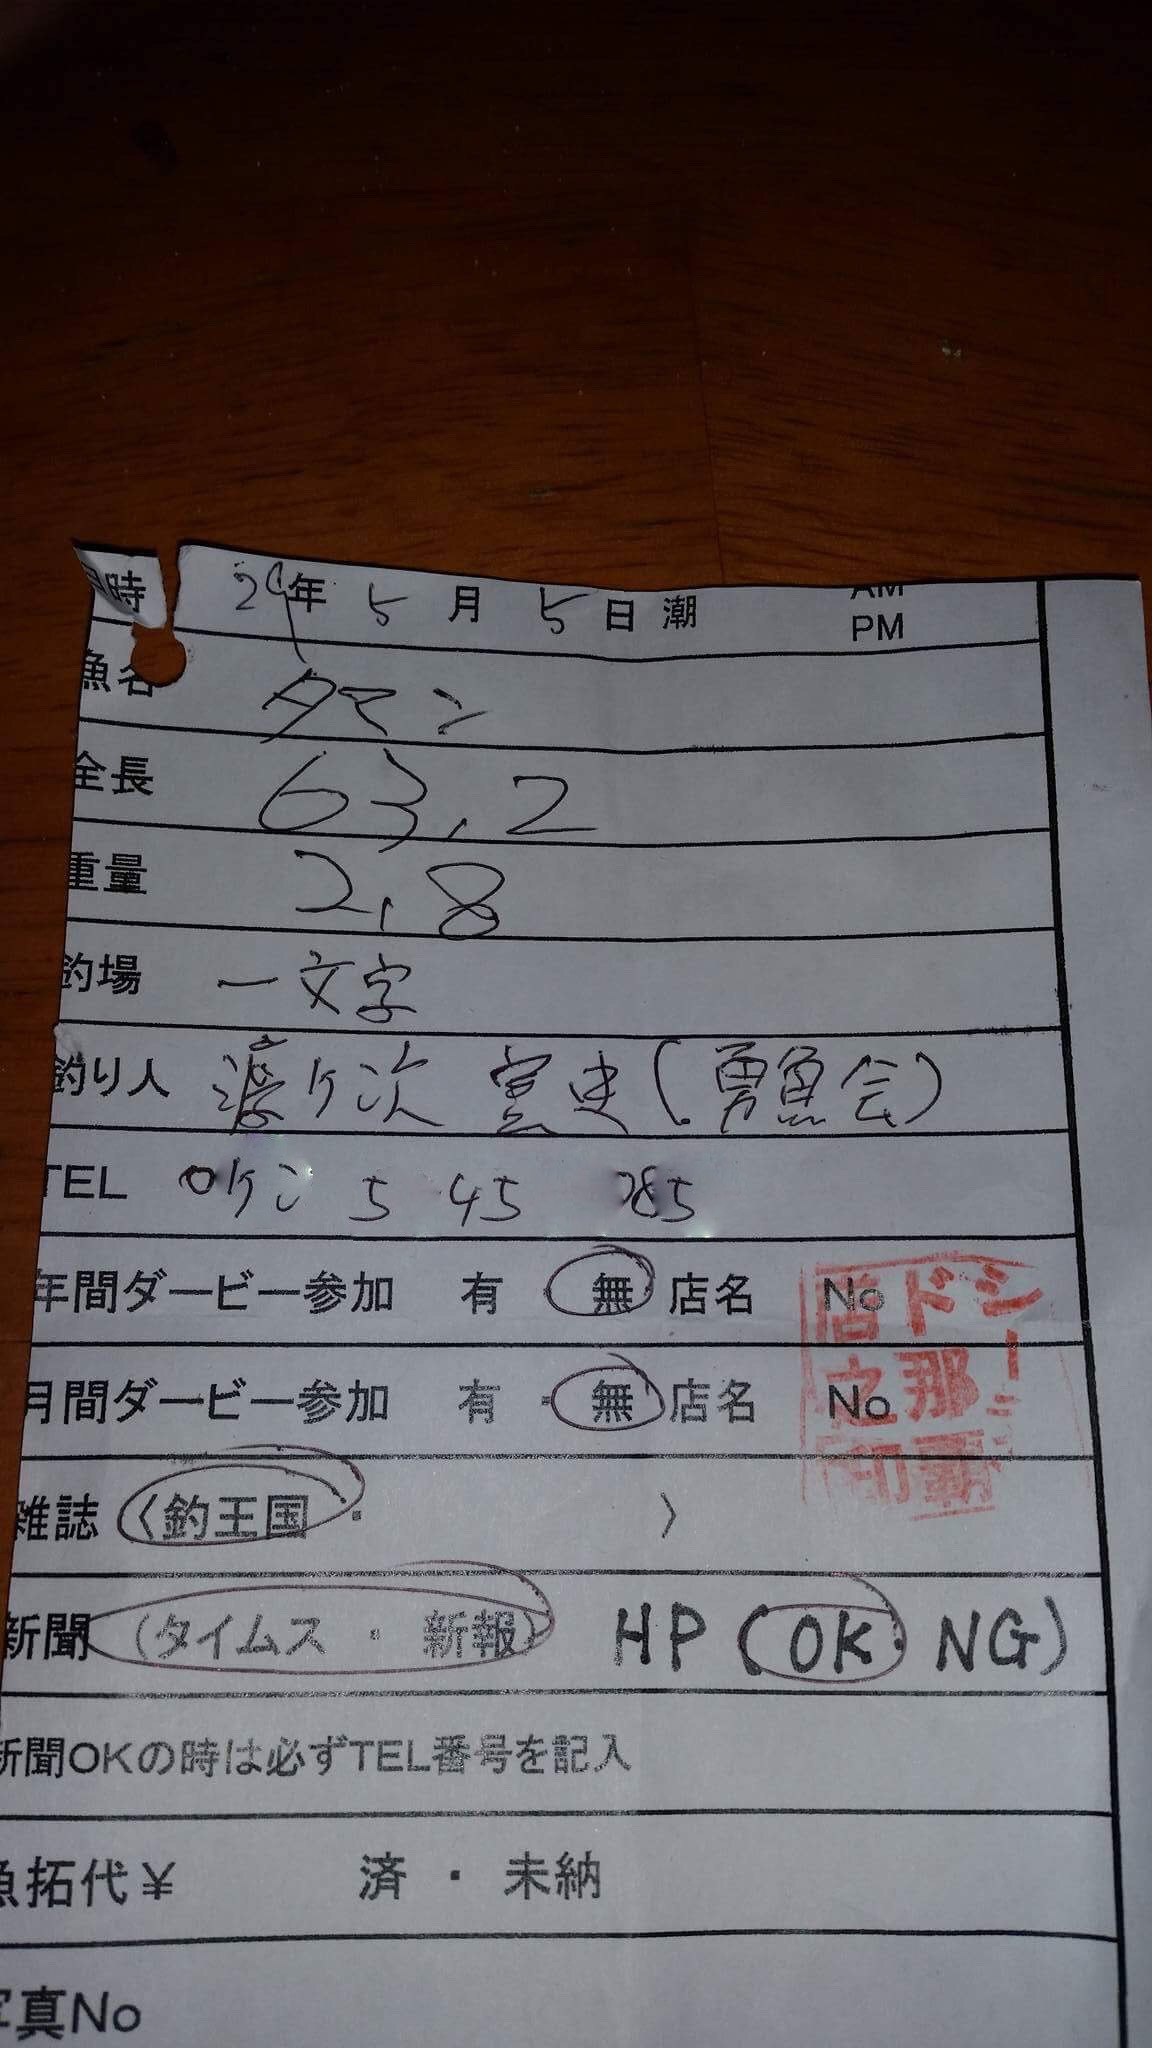 日時 29年 5月 5日 潮 AM PM
魚名 タマン
全長 63.2
重量 2.8
釣場 一文字
釣り人 ケ次 (勇魚会)
TEL 5 45
年間ダービー参加 有 無 店名 No
月間ダービー参加 有・無 店名 No
シード那覇店之印
雑誌 〈釣王国・ 〉
新聞 (タイムス・新報) HP (OK・NG)
新聞OKの時は必ずTEL番号を記入
魚拓代¥ 済・未納
写真No